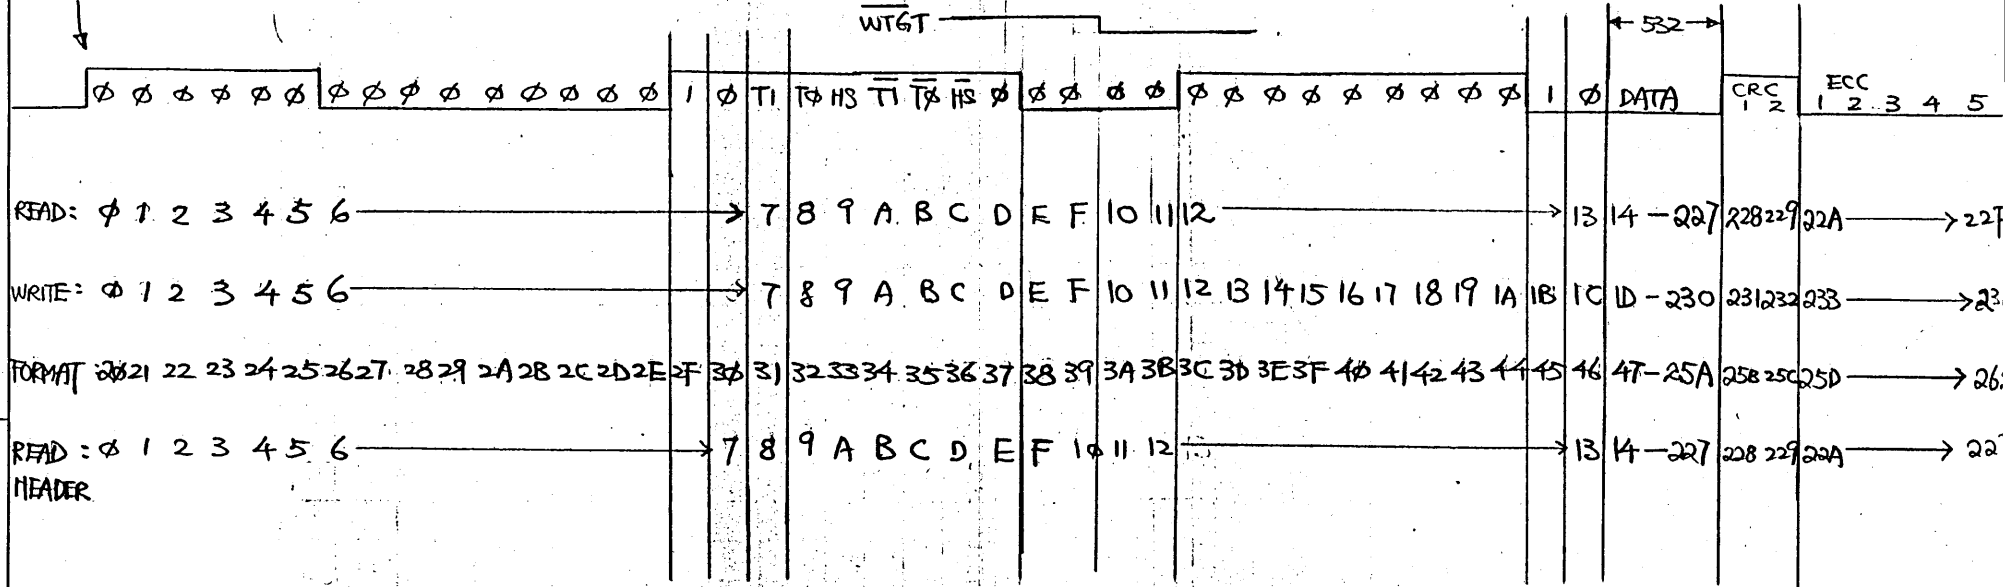 WTGT
532
Ø Ø Ø Ø Ø Ø Ø Ø Ø Ø Ø Ø Ø Ø Ø 1 Ø T1 TØ HS T1 TØ HS Ø Ø Ø Ø Ø Ø Ø Ø Ø Ø Ø Ø Ø Ø 1 Ø DATA CRC 1 2 ECC 1 2 3 4 5
READ: Ø 1 2 3 4 5 6 7 8 9 A B C D E F 10 11 12 13 14-227 228 229 22A
WRITE: Ø 1 2 3 4 5 6 7 8 9 A B C D E F 10 11 12 13 14 15 16 17 18 19 1A 1B 1C 1D-230 231 232 233
FORMAT: 2Ø 21 22 23 24 25 26 27 28 29 2A 2B 2C 2D 2E 2F 3Ø 31 32 33 34 35 36 37 38 39 3A 3B 3C 3D 3E 3F 4Ø 41 42 43 44 45 46 47-25A 25B 25C 25D
READ: Ø 1 2 3 4 5 6 7 8 9 A B C D E F 1Ø 11 12 13 14-227 228 229 22A
HEADER